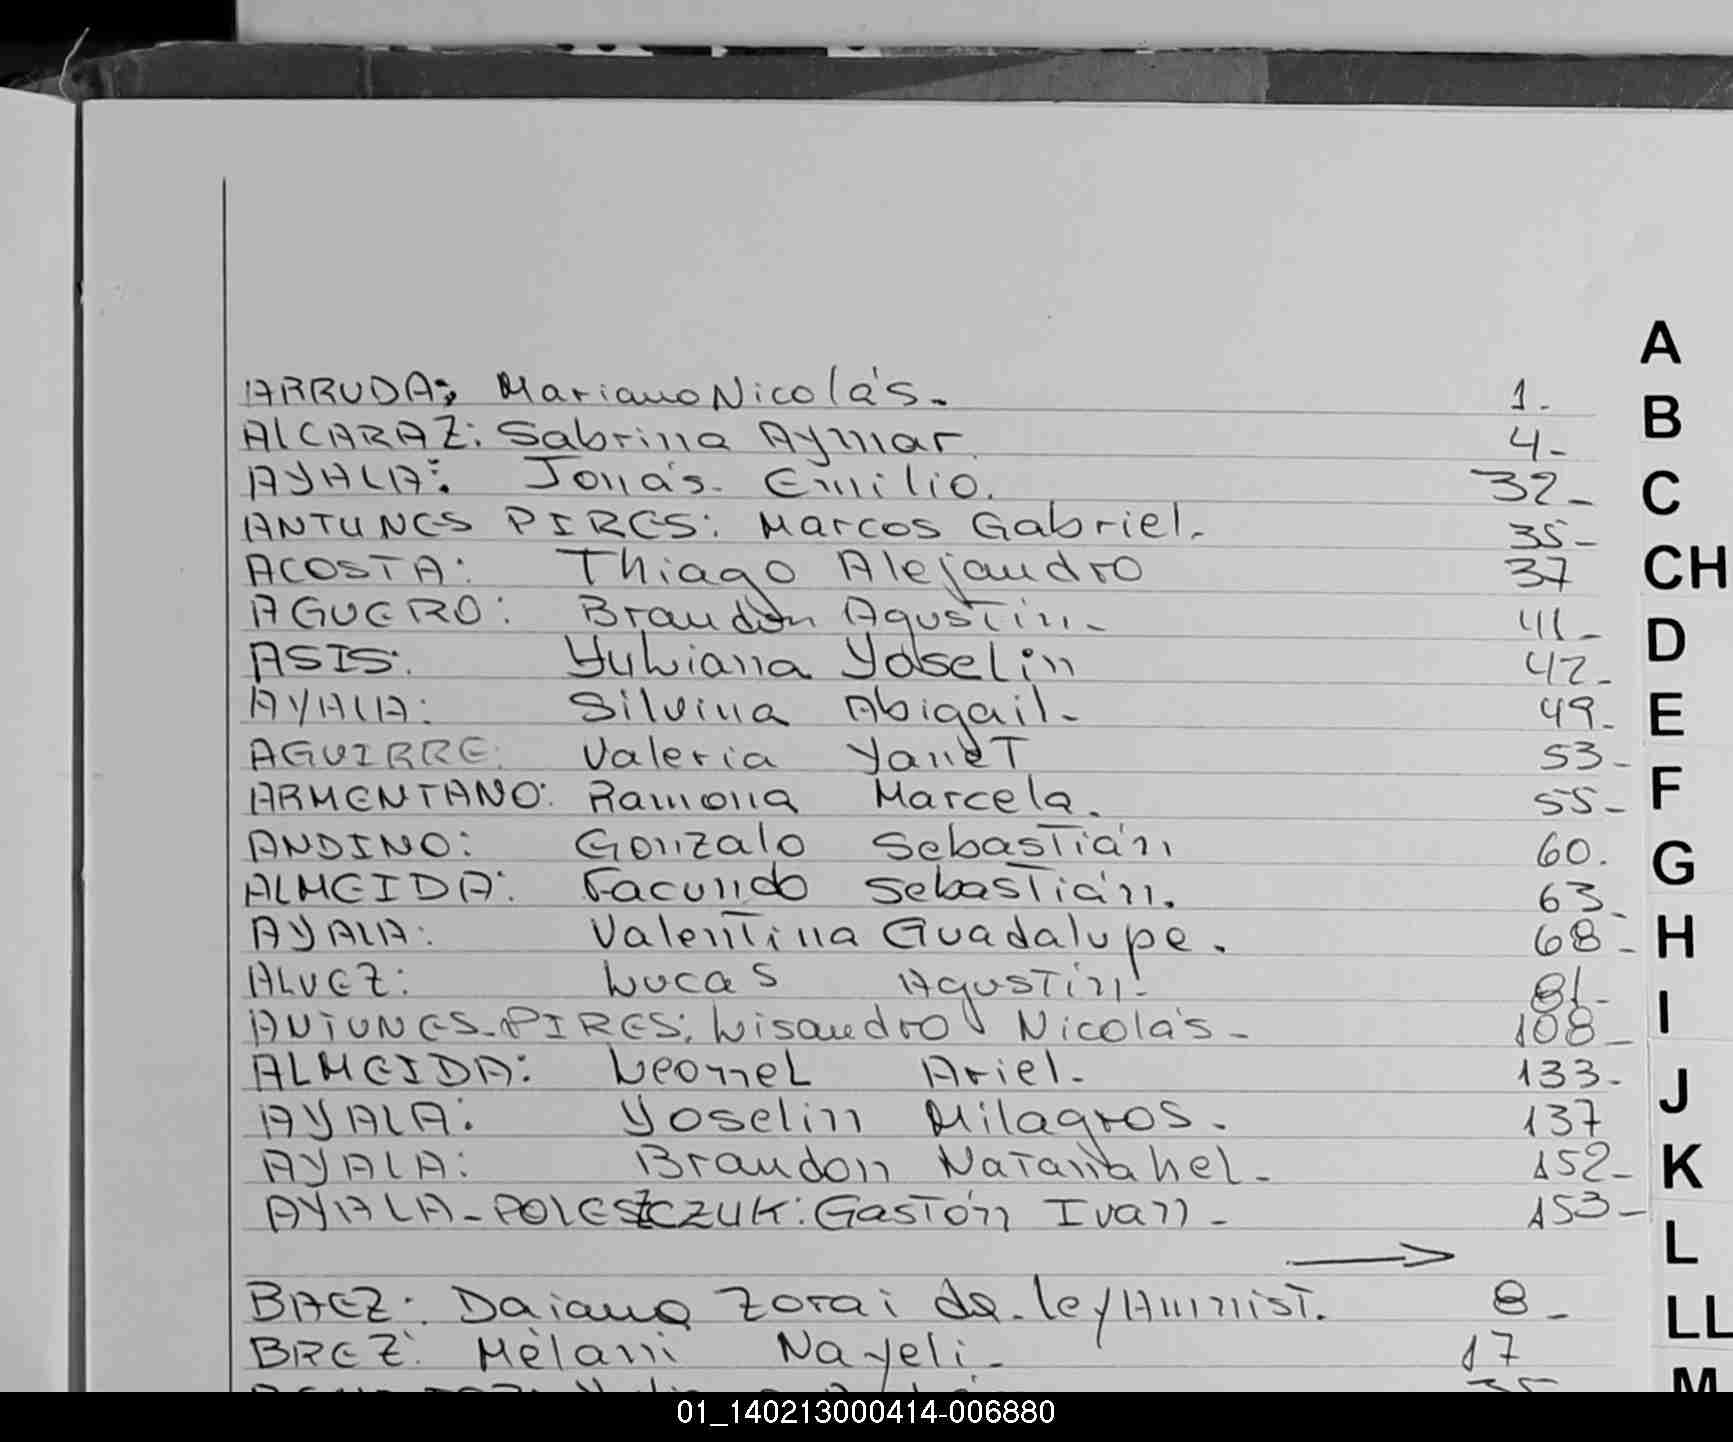 ARRUDA; Mariano Nicolás. 1.
A
B
ALCARAZ: Sabrina Aymar. 4-
AYALA: Jonás. Emilio. 32-
C
ANTUNES PIRES: Marcos Gabriel. 35-
ACOSTA: Thiago Alejandro 37
CH
AGUERO: Brandon Agustin- 41-
D
ASIS: Yuliana Yoselin 42-
AYALA: Silvina Abigail- 49-
E
AGUIRRE: Valeria Yanet 53-
ARMENTANO: Ramona Marcela. 55-
F
ANDINO: Gonzalo Sebastián 60.
G
ALMEIDA: Facundo Sebastián. 63-
AYALA: Valentina Guadalupe. 68-
H
ALVEZ: Lucas Agustín. 81-
ANTUNES-PIRES: Lisandro Nicolás- 108-
I
ALMEIDA: Leonnel Ariel- 133-
J
AYALA: Yoselin Milagros. 137
AYALA: Brandon Natanahel- 152-
K
AYALA-POLESZCZUK: Gastón Ivan- 153-
L
BAEZ: Daiana Zorai da. 8-
LL
BAEZ: Mélani Nayeli- 17
35
M
01_140213000414-006880